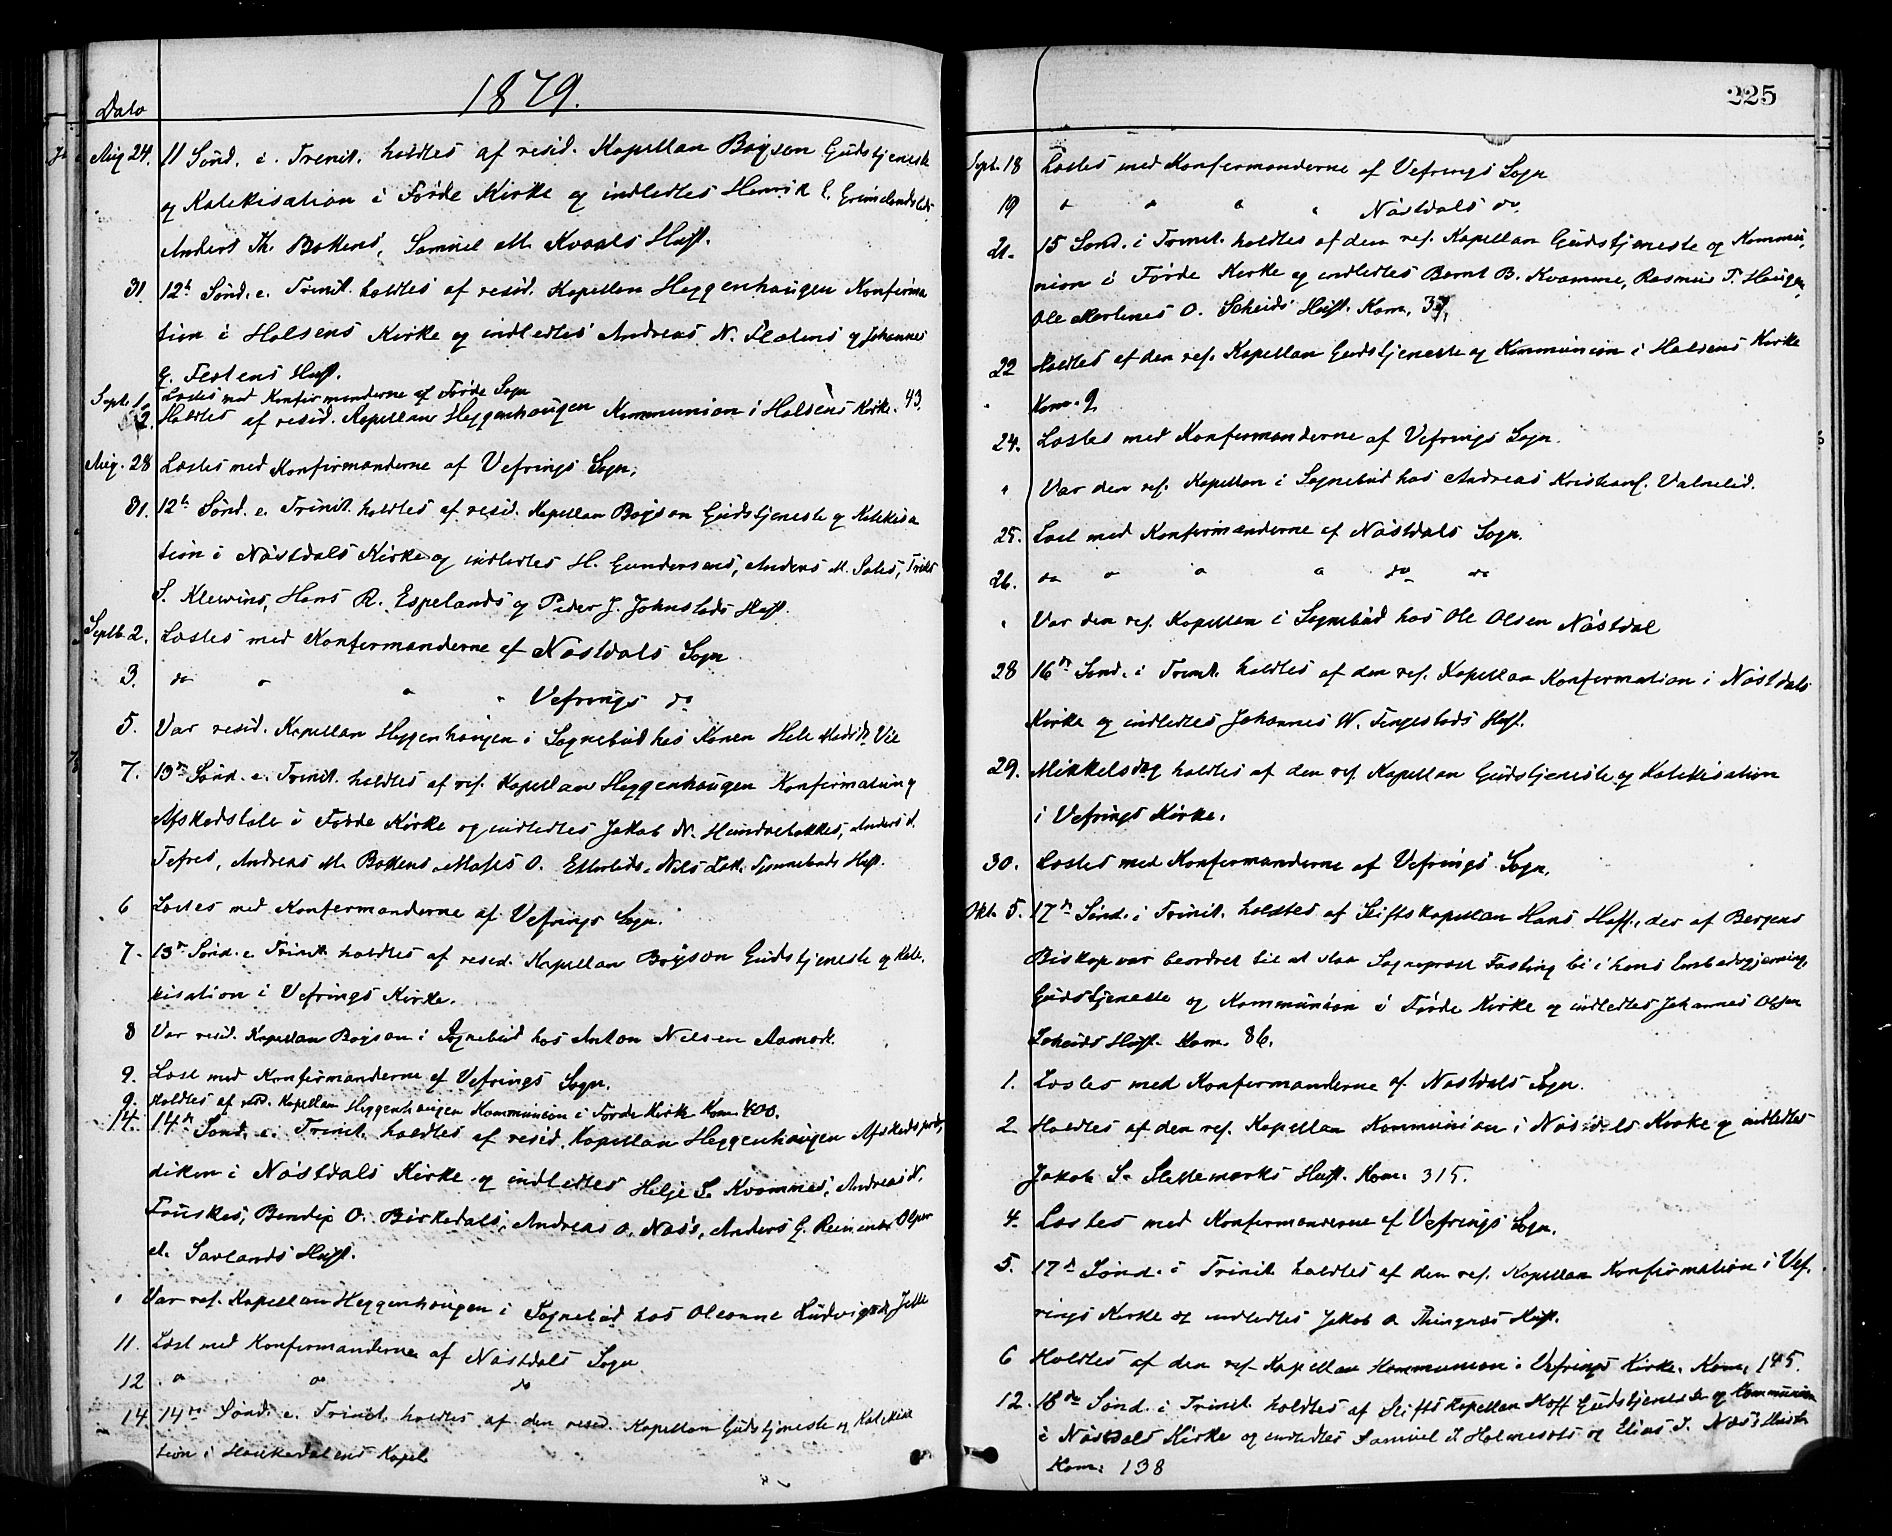 1879.
Dato
Aug 24. 11 Sønd. e. Trinit. holdtes af resid. Kapellan Bøyson Gudstjeneste
og Katekisation i Førde Kirke og indledtes Henrik
Anders Th. Bakkens, Samuel M. Kvaals Hust.
31. 12te Sønd. e. Trinit. holdtes af resid. Kapellan Heggenhaugen Konfirma
tion i Holsens Kirke og indledtes Andreas N. Flatens og Johannes
G. Festens Hust.
Sept. 1. Læstes med Konfirmanderne af Førde Sogn
2. Holdtes af resid. Kapellan Heggenhaugen Kommunion i Holsens Kirke. 43.
Aug. 28 Læstes med Konfirmanderne af Vefrings Sogn.
31. 12te Sønd. e. Trinit. holdtes af resid. Kapellan Bøyson Gudstjeneste og Katekisa
tion i Nøstdals Kirke og indledtes H. Gundersens, Anders M. Soles,
S. Klewins, Hans R. Espelands og Peder J. Johnstads Hust.
Septb. 2. Læstes med Konfirmanderne af Nøstdals Sogn
3. do " " " Vefrings do
5. Var resid. Kapellan Heggenhaugen i Sognebud hos Konen
7. 13de Sønd. e. Trinit. holdtes af res. Kapellan Heggenhaugen Konfirmation og
Afskedstale i Førde Kirke og indledtes Jakob N. Hundvebakkes, Anders
Tefres, Andreas M. Bakkens, Moses O. Nils Hust.
6 Læstes med Konfirmanderne af Vefrings Sogn.
7. 13de Sønd. e Trinit. holdtes af resid. Kapellan Bøyson Gudstjeneste og Kate-
kisation i Vefrings Kirke.
8 Var resid. Kapellan Bøyson i Sognebud hos Anton Nilsen Aamot.
9. Læst med Konfirmanderne af Vefrings Sogn.
9. Holdtes af resid. Kapellan Heggenhaugen Kommunion i Førde Kirke Kom. 400.
14. 14de Sønd. e. Trinit. holdtes af resid. Kapellan Heggenhaugen Afskedspræ-
diken i Nøstdals Kirke og indledtes Helje S. Kvammes, Andreas N.
Fauskes, Bendix O. Birkedals, Andreas O. Næs's, Anders G.
Savlands Hust.
" Var res. Kapellan Heggenhaugen i Sognebud hos Oleanne Ludvigsd.
11. Læst med Konfirmanderne af Nøstdals Sogn
12 " " do
14 14de Sønd. e. Trinit. holdtes af den resid. Kapellan Gudstjeneste og Katekisa
tion i Haukedalens Kapel
225
Sept. 18 Læstes med Konfirmanderne af Vefrings Sogn
19 " " " " Nøstdals do.
21. 15 Sønd. i Trinit. holdtes af den res. Kapellan Gudstjeneste og Kommu-
nion i Førde Kirke og indledtes Bernt B. Kvamme, Rasmus T. Haugen,
Ole Martines O. Scheids Hust. Kom.
22 Holdtes af den res. Kapellan Gudstjeneste og Kommunion i Holsens Kirke
Kom. 9
24. Læstes med Konfirmanderne af Vefrings Sogn.
" Var den res. Kapellan i Sognebud hos Andreas Kristians. Valvelid.
25. Læst med Konfirmanderne af Nøstdals Sogn.
26. do " " " do do
" Var den res. Kapellan i Sognebud hos Ole Olsen Nøstdal
28 16de Sønd. i Trinit. holdtes af den res. Kapellan Konfirmation i Nøstdals
Kirke og indledtes Johannes W. Tingstads Hust.
29. Mikkelsdag holdtes af den res. Kapellan Gudstjeneste og Katekisation
i Vefrings Kirke.
30. Læstes med Konfirmanderne af Vefrings Sogn.
Okt. 5. 17de Sønd. i Trinit. holdtes af Stiftskapellan Hans Hoff, der af Bergens
Biskop var beordret til at staa Sogneprest Fasting bi i hans Embedsgjerning,
Gudstjeneste og Kommunion i Førde Kirke og indledtes Johannes Olsen
Scheids Hust. Kom. 86.
1. Læstes med Konfirmanderne af Nøstdals Sogn.
2 Holdtes af den res. Kapellan Kommunion i Nøstdals Kirke og indledtes
Jakob S. Slettemarks Hust. Kom. 315.
4. Læstes med Konfirmanderne af Vefrings Sogn.
5. 17de Sønd. i Trinit. holdtes af den res. Kapellan Konfirmation i Vef-
rings Kirke og indledtes Jakob A. Thingnæs Hust.
6 Holdtes af den res. Kapellan Kommunion i Vefrings Kirke. Kom. 145.
12. 18de Sønd. i Trinit. holdtes af Stiftskapellan Hoff Gudstjeneste og Kommunion
i Nøstdals Kirke og indledtes Samuel Holmesets og Elias I. Næs's Hustr.
Kom. 138